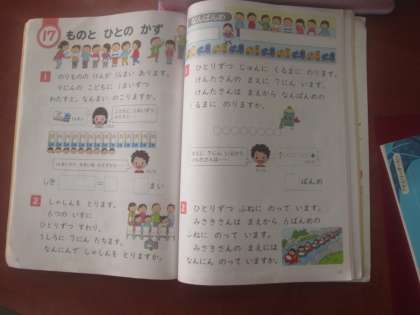 17 ものと ひとの かず
1 のりものの けんが 14まい あります。
9にんの こどもに 1まいずつ
わたすと、なんまい のこりますか。
しき
=
まい
2 しゃしんを とります。
6つの いすに
ひとりずつ すわり、
うしろに 7にん たちます。
なんにんで しゃしんを とりますか。
なんばんめ
ひとりずつ じゅんに くるまに のります。
けんたさんの まえに 7にん います。
けんたさんは まえから なんばんめの
くるまに のりますか。
ばんめ
2 ひとりずつ ふねに のって います。
みさきさんは まえから 6ばんめの
ふねに のって います。
みさきさんの まえには
なんにん のって いますか。